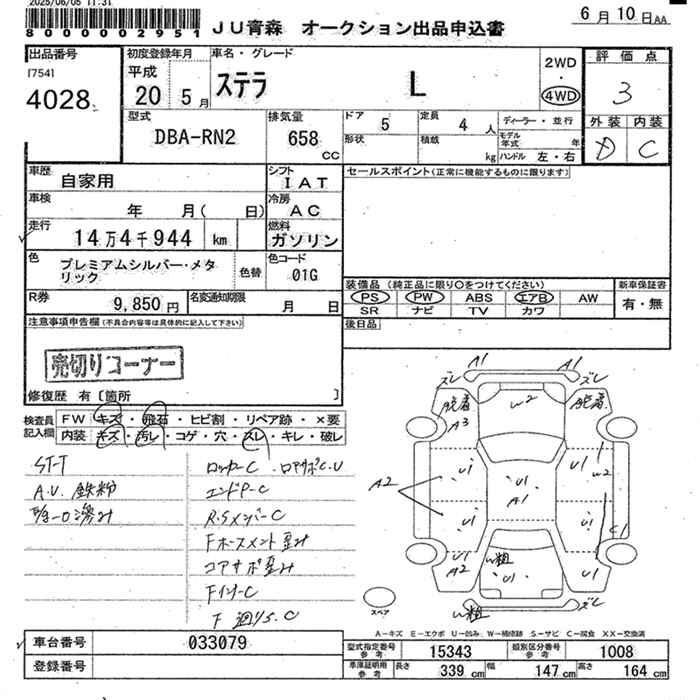 2025/06/05 11:31
8000002951
JU青森 オークション出品申込書
6月10日AA
出品番号
[754]
4028
初度登録年月
平成
20 5月
車名・グレード
ステラ L
2WD
・
4WD
評価点
3
外装 内装
D C
型式
DBA-RN2
排気量
658
cc
ドア 5
定員 4人
形状
積載 kg
ディーラー・並行
モデル年式 年
ハンドル 左・右
車歴
自家用
シフト
IAT
セールスポイント(正常に機能するものに限ります)
車検
年 月( 日)
冷房
AC
走行
14万4千944 km
燃料
ガソリン
色
プレミアムシルバー・メタリック
色替
色コード
01G
装備品(純正品に限り○をつけてください)
PS PW ABS エアB AW
SR ナビ TV カワ
新車保証書
有・無
R券
9,850円
名変通知期限
月 日
後日品
注意事項申告欄(不具合内容等は具体的に記入して下さい)
売切りコーナー
修復歴 有〔箇所 〕
検査員記入欄
FW キズ・飛石・ヒビ割・リペア跡・×要
内装 キズ・汚レ・コゲ・穴・スレ・キレ・破レ
ST-T
A.U. 鉄粉
ロッカーC.ロアサポC.U
エンドP-C
R.SメンバーC
Fホースメント歪み
コアサポ歪み
FインナーC
F廻りS.C
A1
A1
ズレ
ズレ
脱着
A3
W2
脱着
U1
U1
W2
A2
U1
A1
U1
U1
C1
U1
A2
W粗
U1
U1
W粗
ズレ
スペア
A-キズ E-エクボ U-凹み W-補修跡 S-サビ C-腐食 XX-交換済
車台番号
033079
登録番号
型式指定番号参考
15343
類別区分番号参考
1008
車庫証明用参考
長さ 339cm 幅 147cm 高さ 164cm